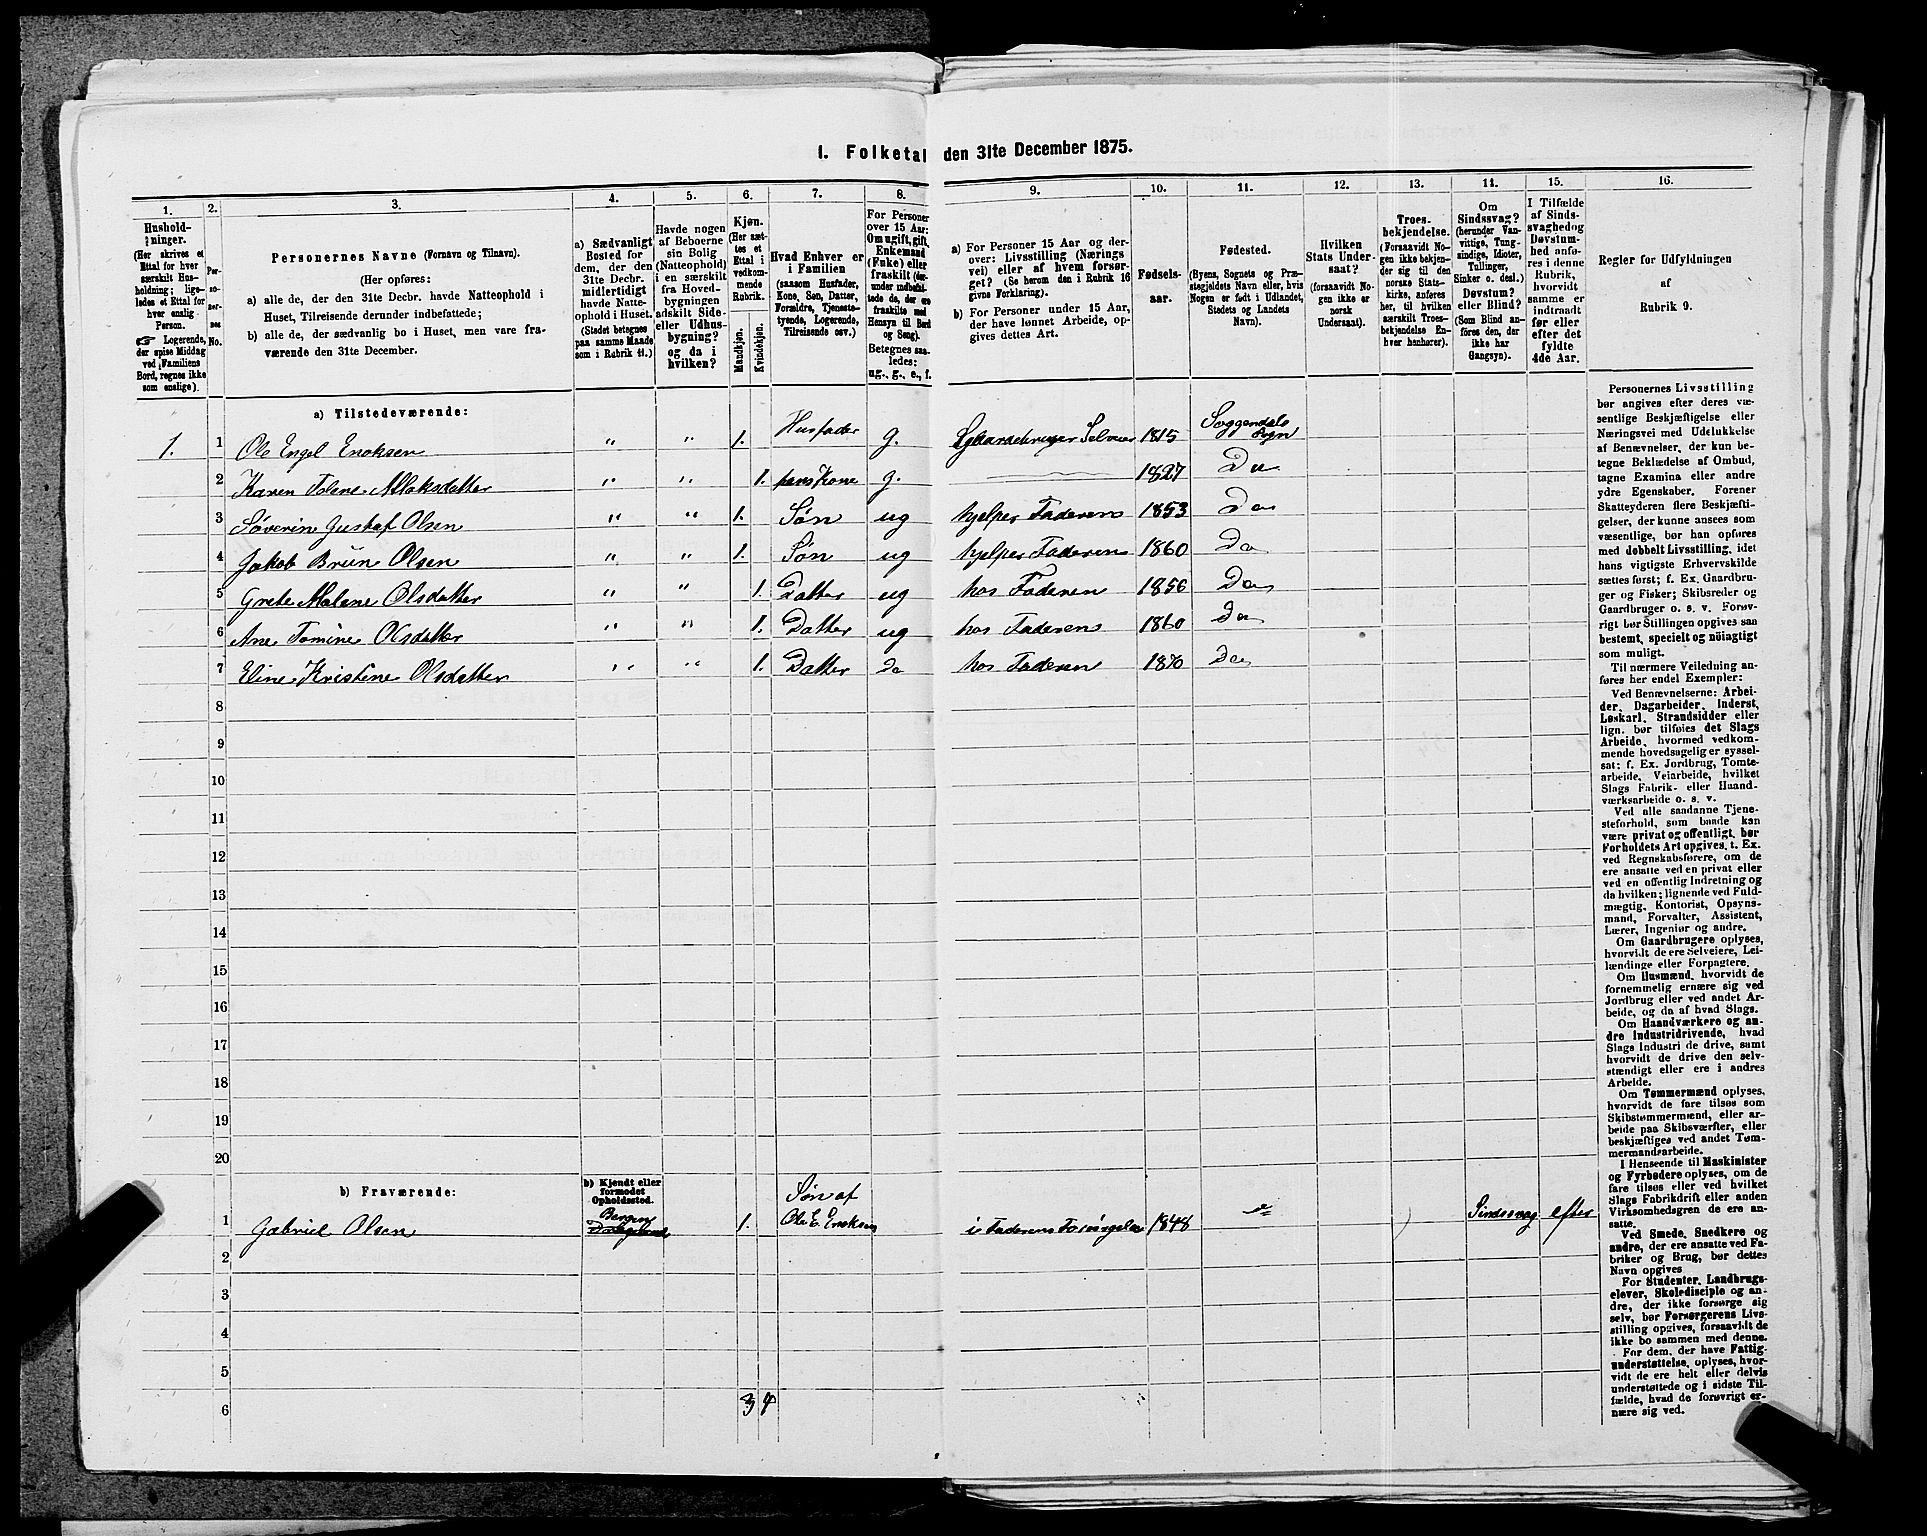 1. Folketal den 31te December 1875.
1. 2. 3. 4. 5. 6. 7. 8. 9. 10. 11. 12. 13. 14. 15. 16.
Hushold-
ninger.
(Her skrives et
Ettal for hver
særskilt Hus-
holdning; lige-
ledes et Ettal for
hver enslig
Person.
☞ Logerende,
der spise Middag
ved Familiens
Bord, regnes ikke
som enslige).
Per-
so-
ner-
nes
No.
Personernes Navne (Fornavn og Tilnavn).
(Her opføres:
a) alle de, der den 31te Decbr. havde Natteophold i
Huset, Tilreisende derunder indbefattede;
b) alle de, der sædvanlig bo i Huset, men vare fra-
værende den 31te December.
a) Sædvanligt
Bosted for
dem, der den
31te Decbr.
midlertidigt
havde Natte-
ophold i Huset.
(Stedet betegnes
paa samme Maade
som i Rubrik 11.)
Havde nogen
af Beboerne
sin Bolig
(Natteophold)
i en særskilt
fra Hoved-
bygningen
adskilt Side-
eller Udhus-
bygning?
og da i
hvilken?
Kjøn.
(Her sæt-
tes et
Ettal i
vedkom-
mende
Rubrik.
Mandkjøn.
Kvindekjøn.
Hvad Enhver er
i Familien
(saasom Husfader,
Kone, Søn, Datter,
Forældre, Tjeneste-
tyende, Logerende,
Tilreisende osv.)
For Personer
over 15 Aar:
Om ugift, gift,
Enkemand
(Enke) eller
fraskilt (der-
under indbefat-
tede de, der ere
fraskilte med
Hensyn til Bord
og Seng).
Betegnes saa-
ledes:
ug., g., e., f.
a) For Personer 15 Aar og der-
over: Livsstilling (Nærings
vei) eller af hvem forsør-
get? (Se herom den i Rubrik 16
givne Forklaring).
b) For Personer under 15 Aar,
der have lønnet Arbeide, op-
gives dettes Art.
Fødsels-
aar.
Fødested.
(Byens, Sognets og Præ-
stegjeldets Navn eller, hvis
Nogen er født i Udlandet,
Stedets og Landets
Navn).
Hvilken
Stats Under-
saat?
(forsaavidt No-
gen ikke er
norsk
Undersaat).
Troes-
bekjendelse.
(Forsaavidt No-
gen ikke bekjen-
der sig til den
norske Stats-
kirke, anføres
her, til hvilken
særskilt Troes-
bekjendelse En-
hver henhører).
Om
Sindssvag?
(herunder Van-
vittige, Tung-
sindige, Idioter,
Tullinger,
Sinker o. desl.).
Døvstum?
eller Blind?
(Som Blind an-
føres den, der
ikke har
Gangsyn).
I Tilfælde
af Sinds-
svaghed og
Døvstum-
hed anfø-
res i denne
Rubrik,
hvorvidt
samme er
indtraadt
før eller
efter det
fyldte
4de Aar.
Regler for Udfyldningen
af
Rubrik 9.
a) Tilstedeværende:
1. 1 Ole Engel Enoksen " " 1. Husfader g. Gaardebruger Selveier 1815 Soggendals Sogn
2 Karen Tolene Aslaksdatter " " 1. hans Kone g. 1827 Do
3 Søverin Gustaf Olsen " " 1. Søn ug hjelper Faderen 1853 Do
4 Jakob Brun Olsen " " 1. Søn ug hjelper Faderen 1860 Do
5 Grete Malene Olsdatter " " 1. Datter ug hos Faderen 1856 Do
6 Ane Tomine Olsdatter " " 1. Datter ug hos Faderen 1860 Do
7 Eline Kristine Olsdatter " " 1. Datter do hos Faderen 1870 Do
8
9
10
11
12
13
14
15
16
17
18
19
20
b) Fraværende:
b) Kjendt eller
formodet
Opholdssted.
1 Gabriel Olsen Bergen 1. Søn af Ole E. Enoksen i Faderens Forsørgelse 1848 Sindssvag efter
2
3
4
5
6
3 4
Personernes Livsstilling
bør angives efter deres væ-
sentlige Beskjæftigelse eller
Næringsvei med Udelukkelse
af Benævnelser, der kun be-
tegne Beklædelse af Ombud,
tagne Examina eller andre
ydre Egenskaber. Forener
Skatteyderen flere Beskjæfti-
gelser, der kunne ansees som
væsentlige, bør han opføres
med dobbelt Livsstilling, idet
hans vigtigste Erhvervskilde
sættes først; f. Ex. Gaardbru-
ger og Fisker; Skibsreder og
Gaardbruger o. s. v. Forøv-
rigt bør Stillingen opgives saa
bestemt, specielt og nøiagtigt
som muligt.
Til nærmere Veiledning an-
føres her endel Exempler:
Ved Benævnelserne: Arbei-
der, Dagarbeider, Inderst,
Løskarl, Strandsidder eller
lign. bør tilføies det Slags
Arbeide, hvormed vedkom-
mende hovedsagelig er syssel-
sat; f. Ex. Jordbrug, Tomte-
arbeide, Veiarbeide, hvilket
Slags Fabrik- eller Haand-
værksarbeide o. s. v.
Ved alle saadanne Tjene-
steforhold, som baade kan
være privat og offentligt, bør
Forholdets Art opgives, t. Ex.
ved Regnskabsførere, om de
ere ansatte ved en privat eller
ved en offentlig Indretning og
da hvilken; lignende ved Fuld-
mægtig, Kontorist, Opsyns-
mand, Forvalter, Assistent,
Lærer, Ingeniør og andre.
Om Gaardbrugere oplyses,
hvorvidt de ere Selveiere, Lei-
lændinge eller Forpagtere.
Om Husmænd, hvorvidt de
fornemmelig ernære sig ved
Jordbrug eller ved andet Ar-
beide, og da af hvad Slags.
Om Haandværkere og an-
dre Industridrivende, hvad
Slags Industri de drive, samt
hvorvidt de drive den selv-
stændigt eller ere i andres
Arbeide.
Om Tømmermænd oplyses,
hvorvidt de fare tilsøs som
Skibstømmermænd, eller ar-
beide paa Skibsværfter, eller
beskjæftiges ved andet Tøm-
mermandsarbeide.
I Henseende til Maskinister
og Fyrbødere oplyses, om de
fare tilsøs eller ved hvilket
Slags Fabrikdrift eller anden
Virksomhedsgren de ere an-
satte.
Ved Smede, Snedkere og
andre, der ere ansatte ved Fa-
briker og Brug, bør dettes
Navn opgives
For Studenter, Landbrugs-
elever, Skoledisciple og an-
dre, der ikke forsørge sig
selv, bør Forsørgerens Livs-
stilling opgives, forsaavidt de
ikke bo sammen med denne.
For dem, der have Fattig-
understøttelse, oplyses, hvor-
vidt de ere helt eller delvis
understøttede og i sidste Til-
fælde, hvad de forøvrigt er-
nære sig ved.